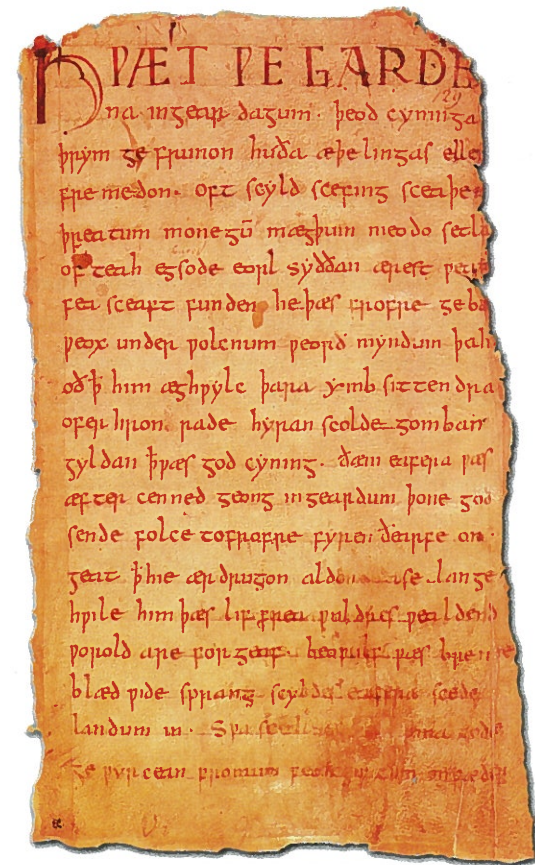 HǷÆT ǷE GARDE
na ingear dagum · þeod cyninga
þrym ge frunon huða æþelingas elle
fremedon · oft scyld scefing sceaþe
þreatum monegū mægþum meodo setla
of teah egsode eorl syððan ærest ƿearð
fea sceaft funden he þæs frofre geba
ƿeox under ƿolcnum ƿeorð myndum þah
oð ꝥ him æghƿylc þara ymb sittendra
ofer hron rade hyran scolde gomban
gyldan ꝥ ƿæs god cyning · ðæm eafera ƿæs
æfter cenned geong ingeardum þone god
sende folce tofrofre fyren ðearfe on
geat ꝥ hie ær drugon aldor ase lange
hƿile him þæs lif frea ƿuldres ƿealdend
ƿorold are for geaf · beoƿulf ƿæs breme
blæd ƿide sprang scyldes eafera scede
landum in · Sƿa sceal uma gode
ge ƿyrcean fromum feoh giftum